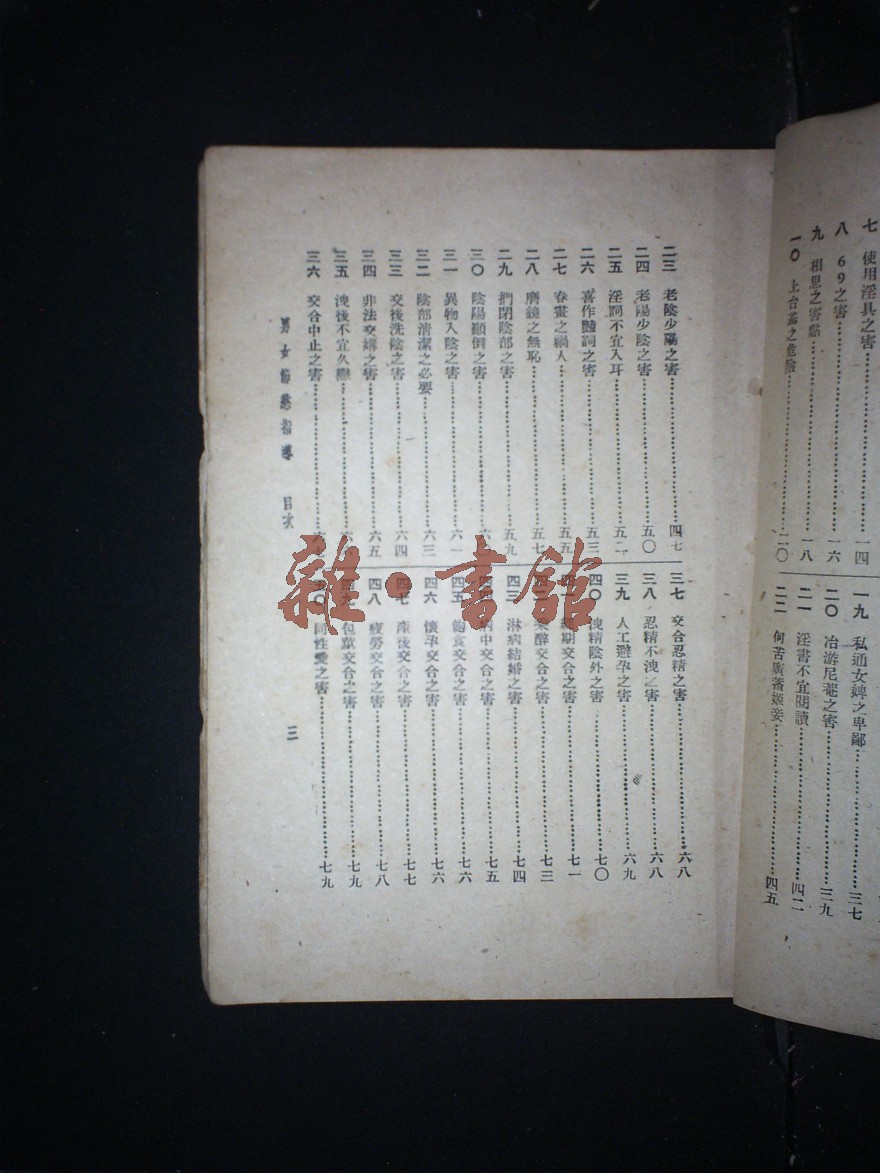 七 使用淫具之害 一四
八 69之害 一六
九 相思之害 一八
一〇 上台基之危險 二〇
一九 私通女婢之卑鄙 三七
二〇 冶游尼菴之害 三九
二一 淫書不宜閱讀 四二
二二 何苦廣蓄姬妾 四五
二三 老陰少陽之害 四七
二四 老陽少陰之害 五〇
二五 淫詞不宜入耳 五二
二六 喜作豔詞之害 五三
二七 春畫之禍人 五五
二八 磨鏡之無恥 五七
二九 捫閉陰部之害 五九
三〇 陰陽顚倒之害 六
三一 異物入陰之害 六一
三二 陰部清潔之必要 六三
三三 交後洗陰之害 六四
三四 非法交媾之害 六五
三五 洩後不宜久戀 六
三六 交合中止之害 六七
三七 交合忍精之害 六八
三八 忍精不洩之害 六八
三九 人工避孕之害 六九
四〇 洩精陰外之害 七〇
期交合之害 七一
醉交合之害 七三
四三 淋病結婚之害 七四
病中交合之害 七五
四五 飽食交合之害 七六
四六 懷孕交合之害 七六
四七 產後交合之害 七七
四八 疲勞交合之害 七八
四九 包莖交合之害 七九
五〇 同性愛之害 七九
男女節慾指導 目次
三
雜·書館